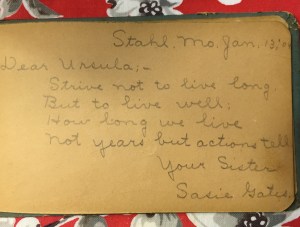 Stahl, Mo. Jan. 13,
Dear Ursula;-
Strive not to live long,
But to live well;
How long we live
Not years but actions tell
Your Sister
Sasie Gates.